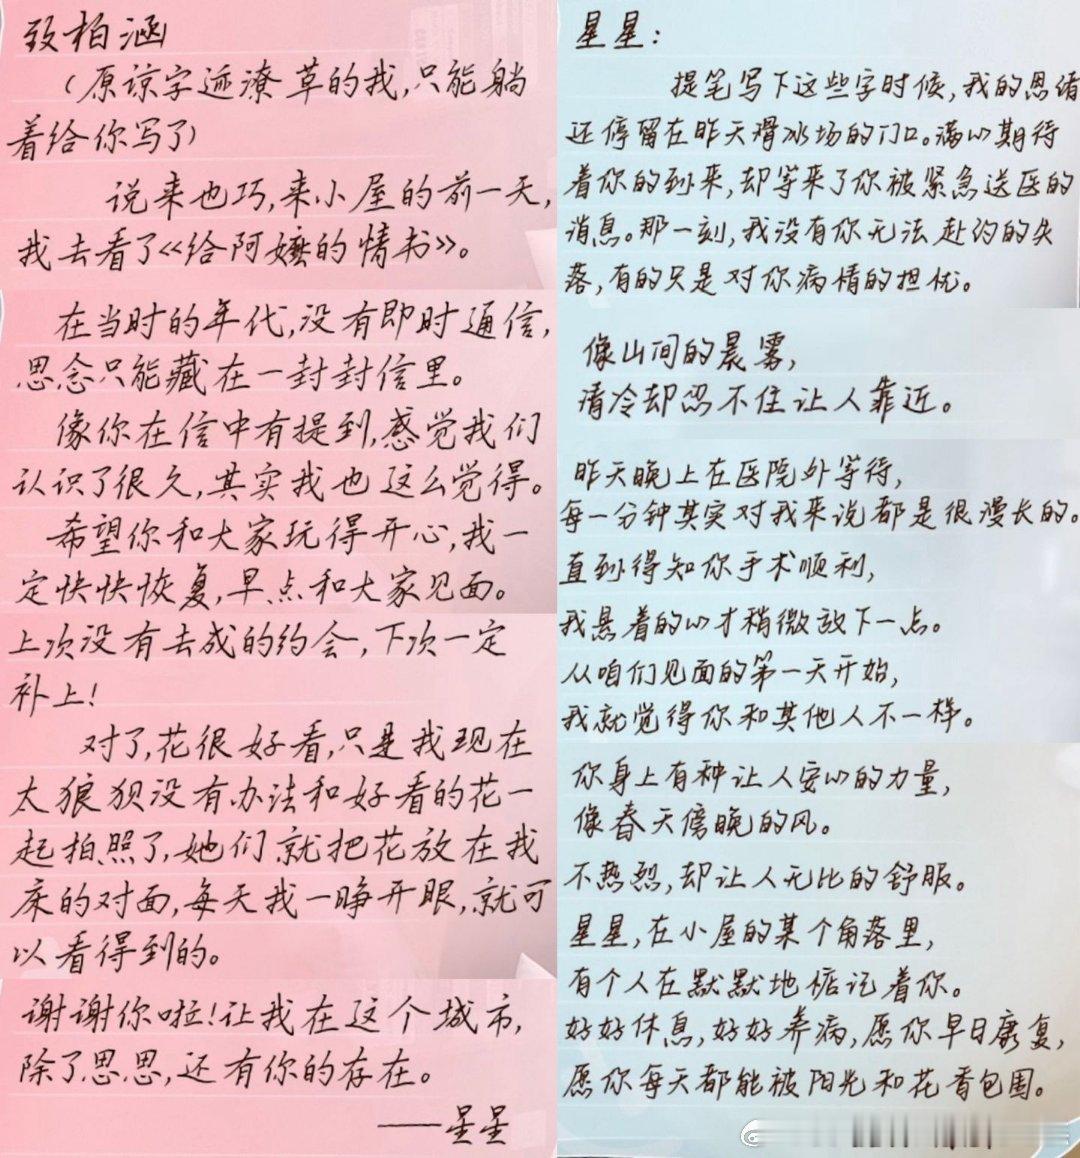 致柏涵
（原谅字迹潦草的我,只能躺
着给你写了）
说来也巧,来小屋的前一天,
我去看了《给阿嬷的情书》。
在当时的年代,没有即时通信,
思念只能藏在一封封信里。
像你在信中有提到,感觉我们
认识了很久,其实我也这么觉得。
希望你和大家玩得开心,我一
定快快恢复,早点和大家见面。
上次没有去成的约会,下次一定
补上!
对了,花很好看,只是我现在
太狼狈没有办法和好看的花一
起拍照了,她们就把花放在我
床的对面,每天我一睁开眼,就可
以看得到的。
谢谢你啦!让我在这个城市,
除了思思,还有你的存在。
——星星
星星：
提笔写下这些字时候,我的思绪
还停留在昨天滑冰场的门口。满心期待
着你的到来,却等来了你被紧急送医的
消息。那一刻,我没有你无法赴约的失
落,有的只是对你病情的担忧。
像山间的晨雾,
清冷却忍不住让人靠近。
昨天晚上在医院外等待,
每一分钟其实对我来说都是很漫长的。
直到得知你手术顺利,
我悬着的心才稍微放下一点。
从咱们见面的第一天开始,
我就觉得你和其他人不一样。
你身上有种让人安心的力量,
像春天傍晚的风。
不热烈,却让人无比的舒服。
星星,在小屋的某个角落里,
有个人在默默地惦记着你。
好好休息,好好养病,愿你早日康复,
愿你每天都能被阳光和花香包围。